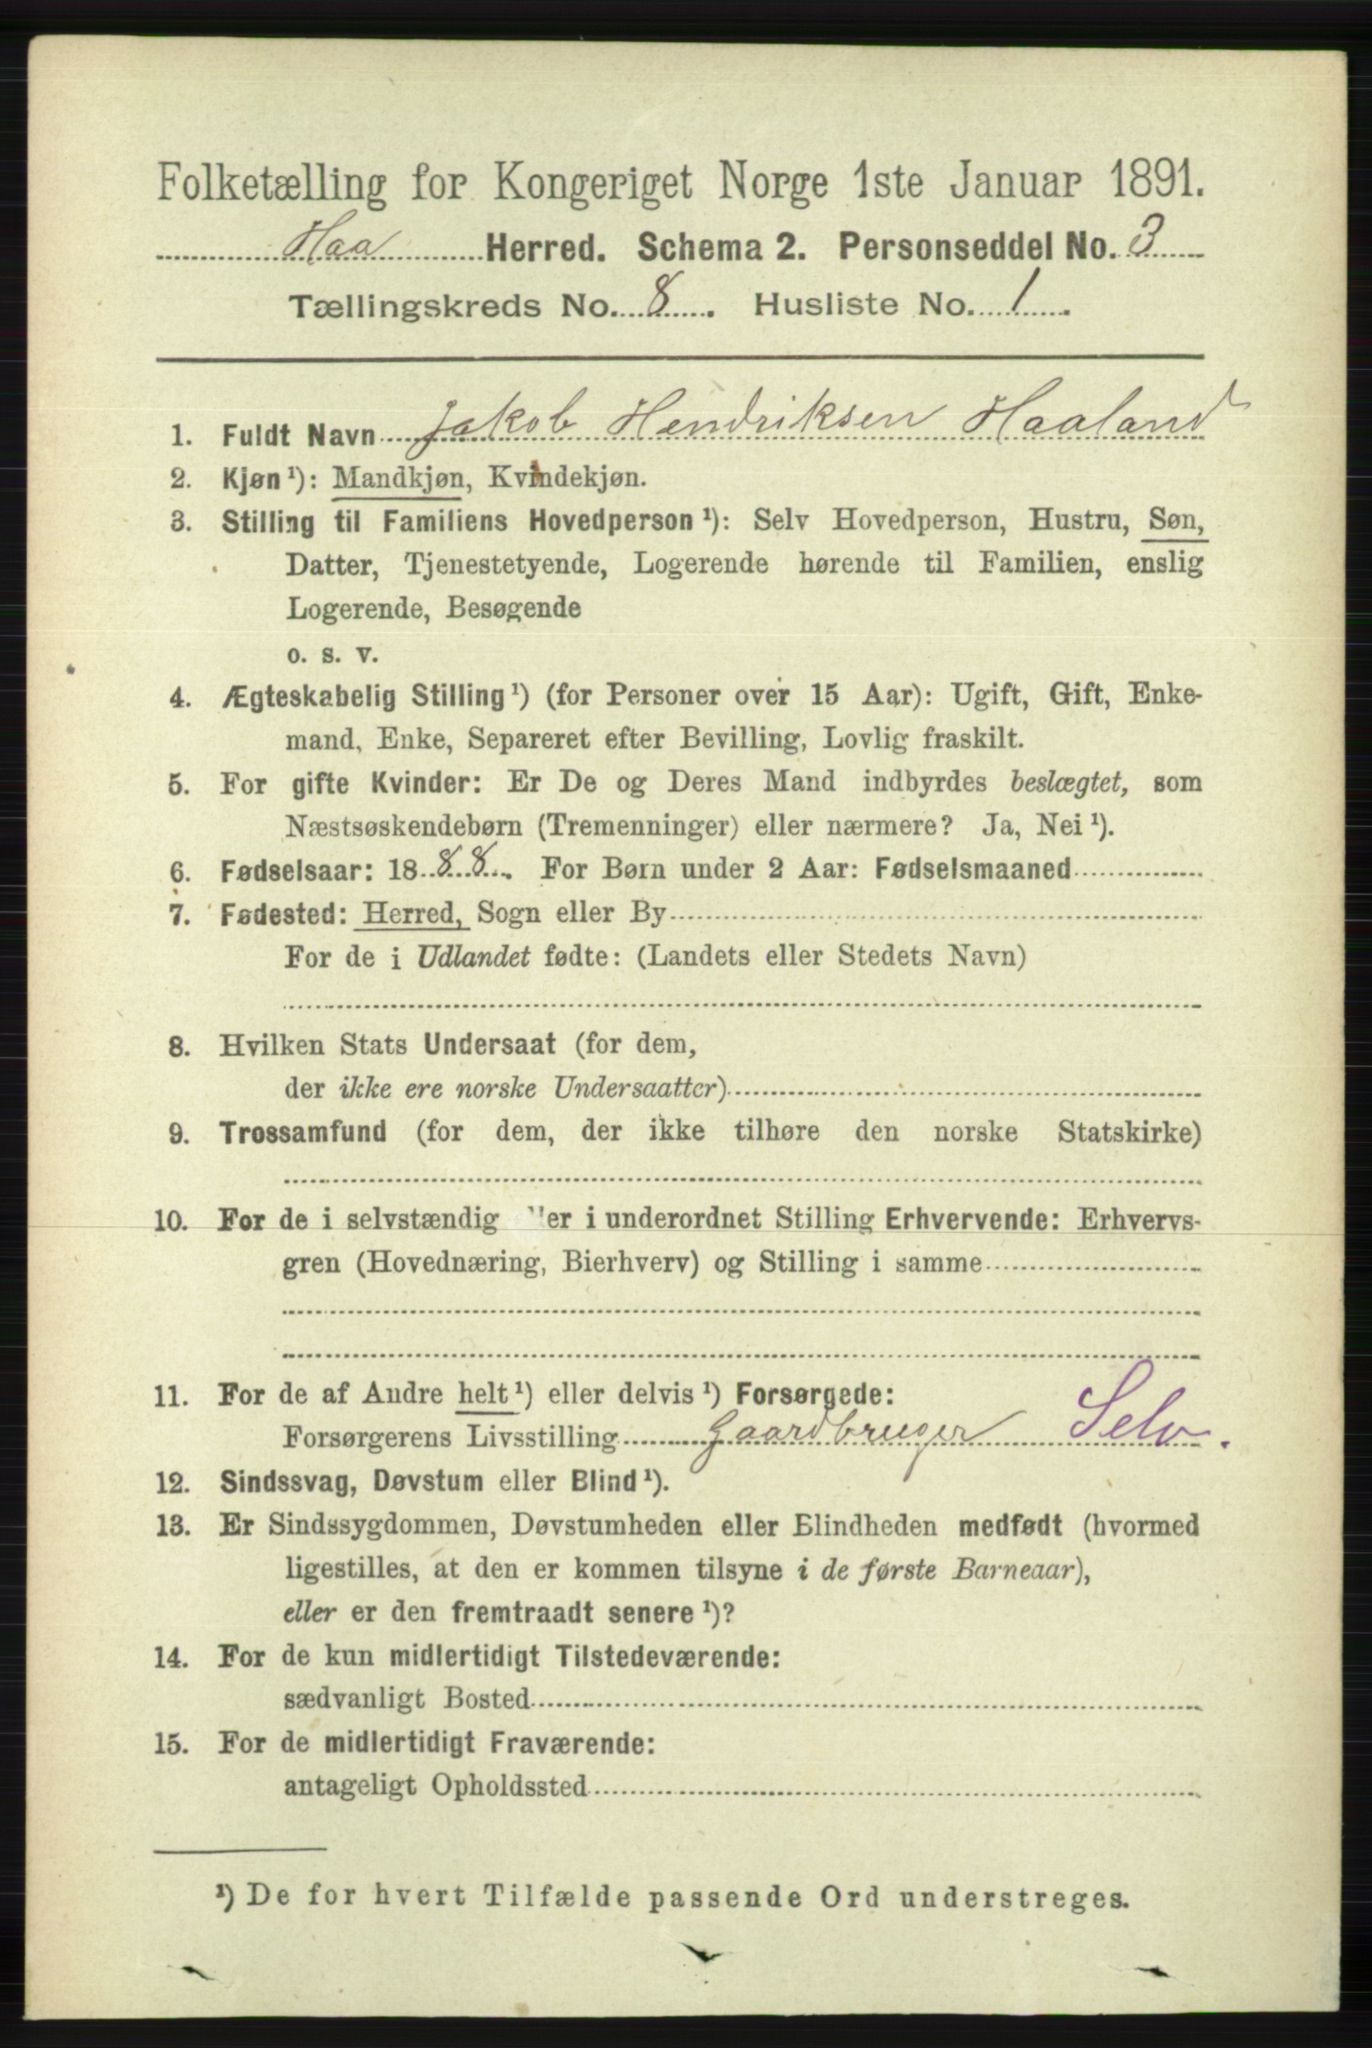 Folketælling for Kongeriget Norge 1ste Januar 1891.
Haa Herred. Schema 2. Personseddel No. 3
Tællingskreds No. 8. Husliste No. 1.
1. Fuldt Navn Jakob Hendriksen Haaland
2. Kjøn ¹): Mandkjøn, Kvindekjøn.
3. Stilling til Familiens Hovedperson ¹): Selv Hovedperson, Hustru, Søn,
Datter, Tjenestetyende, Logerende hørende til Familien, enslig
Logerende, Besøgende
o. s. v.
4. Ægteskabelig Stilling ¹) (for Personer over 15 Aar): Ugift, Gift, Enke-
mand, Enke, Separeret efter Bevilling, Lovlig fraskilt.
5. For gifte Kvinder: Er De og Deres Mand indbyrdes beslægtet, som
Næstsøskendebørn (Tremenninger) eller nærmere? Ja, Nei ¹).
6. Fødselsaar: 1888. For Børn under 2 Aar: Fødselsmaaned
7. Fødested: Herred, Sogn eller By
For de i Udlandet fødte: (Landets eller Stedets Navn)
8. Hvilken Stats Undersaat (for dem,
der ikke ere norske Undersaatter)
9. Trossamfund (for dem, der ikke tilhøre den norske Statskirke)
10. For de i selvstændig eller i underordnet Stilling Erhvervende: Erhvervs-
gren (Hovednæring, Bierhverv) og Stilling i samme
11. For de af Andre helt ¹) eller delvis ¹) Forsørgede:
Forsørgerens Livsstilling Gaardbruger Selv.
12. Sindssvag, Døvstum eller Blind ¹).
13. Er Sindssygdommen, Døvstumheden eller Blindheden medfødt (hvormed
ligestilles, at den er kommen tilsyne i de første Barneaar),
eller er den fremtraadt senere ¹)?
14. For de kun midlertidigt Tilstedeværende:
sædvanligt Bosted
15. For de midlertidigt Fraværende:
antageligt Opholdssted
¹) De for hvert Tilfælde passende Ord understreges.